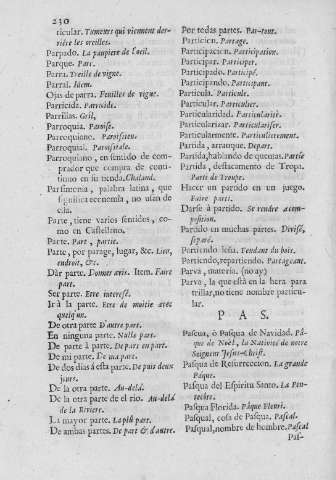 230
ticular. Tumeurs qui viennent der-
riére les oreilles.
Parpado. La paupiere de l'oeil.
Parque. Parc.
Parra. Treille de vigne.
Parral. Idem.
Ojas de parra. Feuilles de vigne.
Parricida. Parricide.
Parrillas. Gril,
Parroquia. Paroisse.
Parroquiano. Paroissien.
Parroquial. Paroissiale.
Parroquiano, en sentido de com-
prador que compra de conti-
nuo en su tienda. Chaland.
Parsimonia, palabra latina, que
significa economia, no usan de
ella.
Parte, tiene varios sentidos, co-
mo en Castellano.
Parte. Part, partie.
Parte, por parage, lugar, &c. Lieu,
endroit, &c.
Dàr parte. Donner avis. Item. Faire
part.
Ser parte. Etre interessé.
Ir à la parte. Etre de moitie avec
quelqu'un.
De otra parte D'autre part.
En ninguna parte. Nulle part.
De parte à parte. De part en part.
De mi parte. De ma part.
De dos dias à esta parte. De puis deux
jours.
De la otra parte. Au-delà.
De la otra parte de el rio. Au-delà
de la Riviere.
La mayor parte. La plus part.
De ambas partes. De part & d'autre.
Por todas partes. Par-tout.
Particion. Partage.
Participacion. Participation.
Participar. Participer.
Participado. Participé.
Participando. Participant.
Particula. Particule.
Particular. Particulier.
Particularidad. Particularité.
Particularizar. Particulariser.
Particularmente. Particulierement.
Partida, arranque. Depart.
Partida, hablando de quentas. Partie
Partida, destacamento de Tropa.
Parti de Troupe.
Hacer un partido en un juego.
Faire parti.
Darse à partido. Se rendre à com-
position.
Partido en muchas partes. Divisé,
separé.
Partiendo leña. Fendant du bois.
Partiendo, repartiendo. Partageant.
Parva, materia. (no ay)
Parva, la que està en la hera para
trillar, no tiene nombre particu-
lar.
P A S.
Pascua, ò Pasqua de Navidad. Pâ-
que de Noël, la Nativité de notre
Seigneur Jesus-Christ.
Pasqua de Resurreccion. La grande
Pâque.
Pasqua del Espiritu Santo. La Pen-
tecôte.
Pasqua Florida. Pâque Fleuri.
Pasqual, cosa de Pasqua. Pascal.
Pasqual, nombre de hombre. Pascal
Pas-